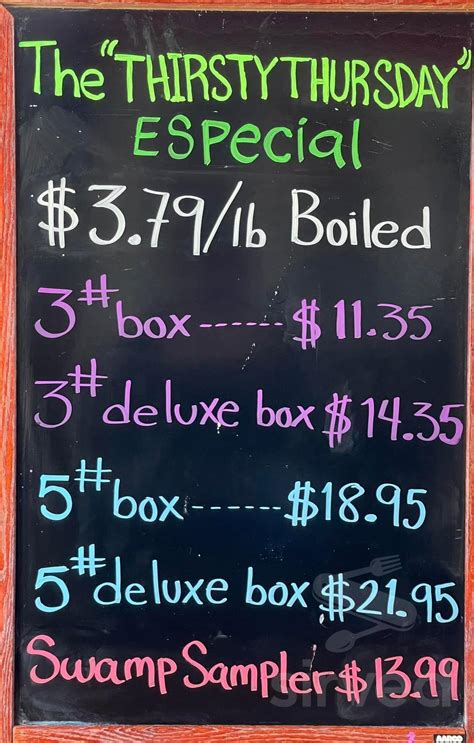 The "THIRSTY THURSDAY"
ESPecial
$3.79/lb Boiled
3# box ------ $11.35
3# deluxe box $14.35
5# box ------ $18.95
5# deluxe box $21.95
Swamp Sampler $13.99
sirved